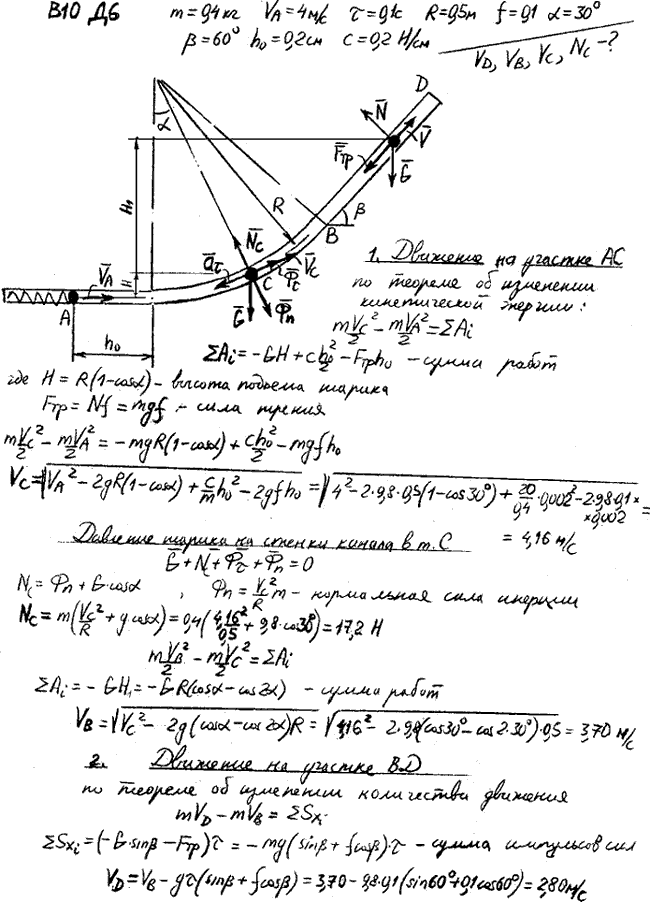 В10 Д6 m=0,4кг V̄A=4м/с τ=0,1с R=0,5м f=0,1 α=30°
β=60° h₀=0,2см c=0,2 Н/см
VD, VB, VC, NC -?
α
D
N̄
V̄
F̄тр
Ḡ
H₁
R
β
B
N̄c
āτ
V̄c
C
Φ̄τ
H
V̄A
A
Ḡ
Φ̄n
h₀
1. Движение на участке АС
по теореме об изменении
кинетической энергии:
mVc²/2 - mVA²/2 = ΣAi
ΣAi = -GH + ch₀²/2 - Fтрh₀ - сумма работ
где H = R(1-cosα) - высота подъема шарика
Fтр = Nf = mgf - сила трения
mVc²/2 - mVA²/2 = -mgR(1-cosα) + ch₀²/2 - mgfh₀
Vc = √(VA² - 2gR(1-cosα) + c/m h₀² - 2gfh₀) = √(4² - 2·9,8·0,5(1-cos30°) + 20/0,4·0,002² - 2·9,8·0,1× ×0,002) =
= 4,16 м/с
Давление шарика на стенки канала в т. С
Ḡ + N̄ + Φ̄τ + Φ̄n = 0
Nc = Φn + G·cosα , Φn = Vc²/R m - нормальная сила инерции
Nc = m(Vc²/R + g cosα) = 0,4(4,16²/0,5 + 9,8·cos30°) = 17,2 Н
mVB²/2 - mVc²/2 = ΣAi
ΣAi = -GH₁ = -GR(cosα - cos2α) - сумма работ
VB = √(Vc² - 2g(cosα - cos2α)R) = √(4,16² - 2·9,8(cos30° - cos2·30°)·0,5) = 3,70 м/с
2. Движение на участке ВD
по теореме об изменении количества движения
mVD - mVB = ΣSxi
ΣSxi = (-G·sinβ - Fтр)τ = -mg(sinβ + fcosβ)·τ - сумма импульсов сил
VD = VB - gτ(sinβ + fcosβ) = 3,70 - 9,8·0,1(sin60° + 0,1cos60°) = 2,80 м/с